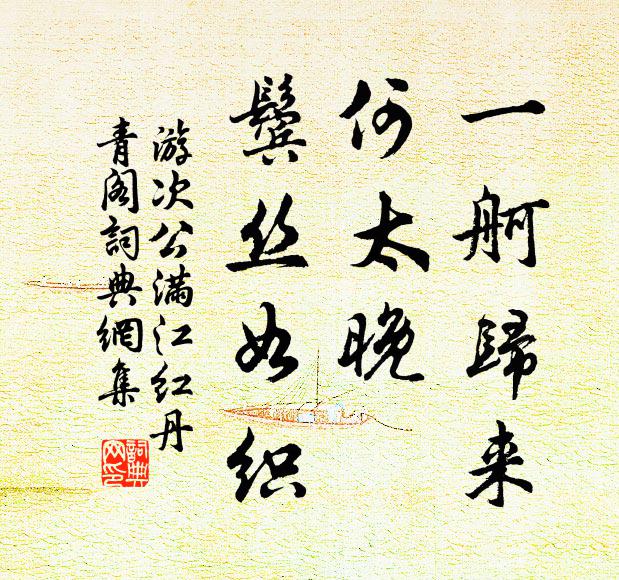 一舸歸来
何太晚
鬓丝如织
游次公满江红丹
青阁词典網集
詞典網印